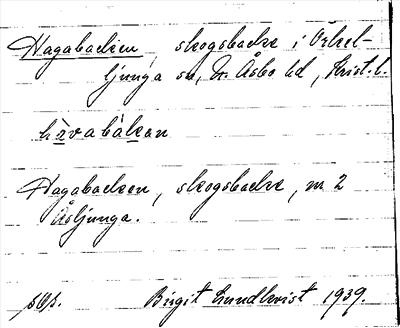 Hagabacken, skogsbacke i Örkel-
ljunga sn, N. Åsbo hd, Krist. l.
Hagabacken, skogsbacke, m 2
Åsljunga.
Birgit Lundkvist 1939.